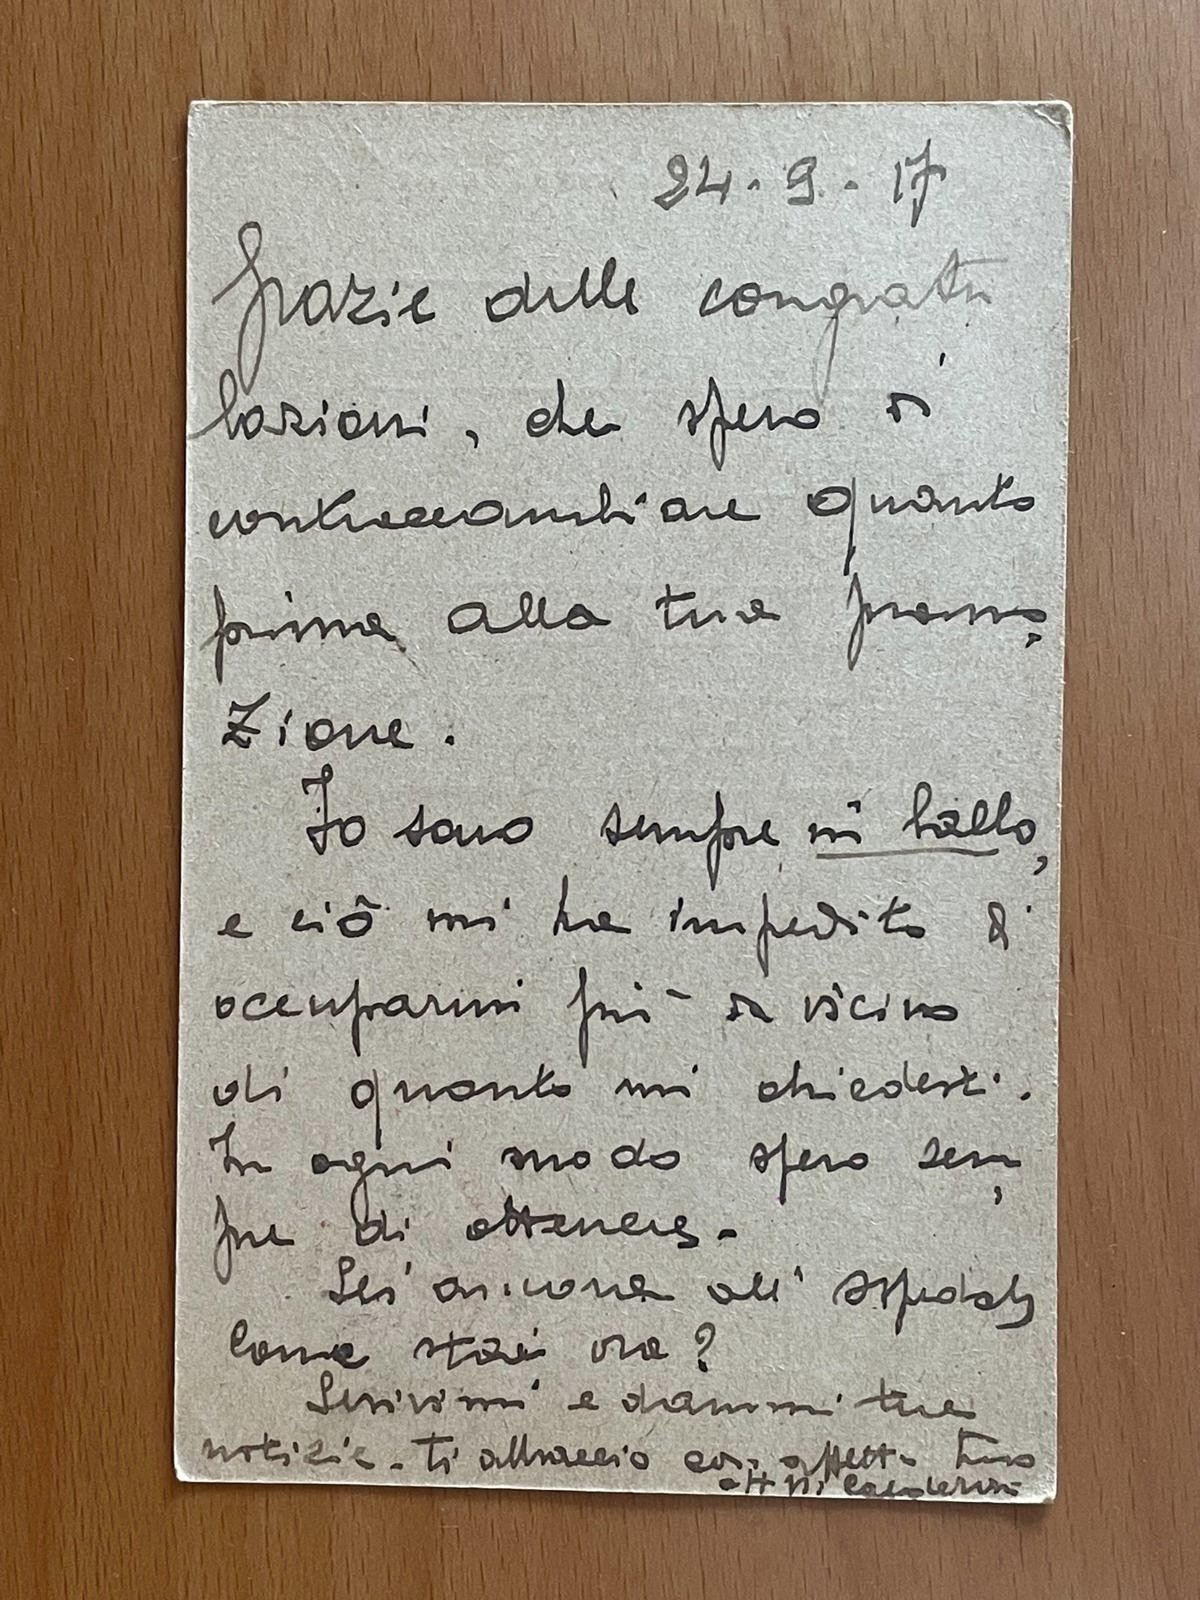 24-9-17
Grazie delle congratu
lazioni, che spero di
contraccambiare quanto
prima alla tua promo
zione.
Io sono sempre in ballo,
e ciò mi ha impedito di
occuparmi più da vicino
di quanto mi chiedesti.
In ogni modo spero sem
pre di ottenere.
Sei ancora all'ospedale
Come stai ora?
Scrivimi e dammi tue
notizie. Ti abbraccio con affetto tuo